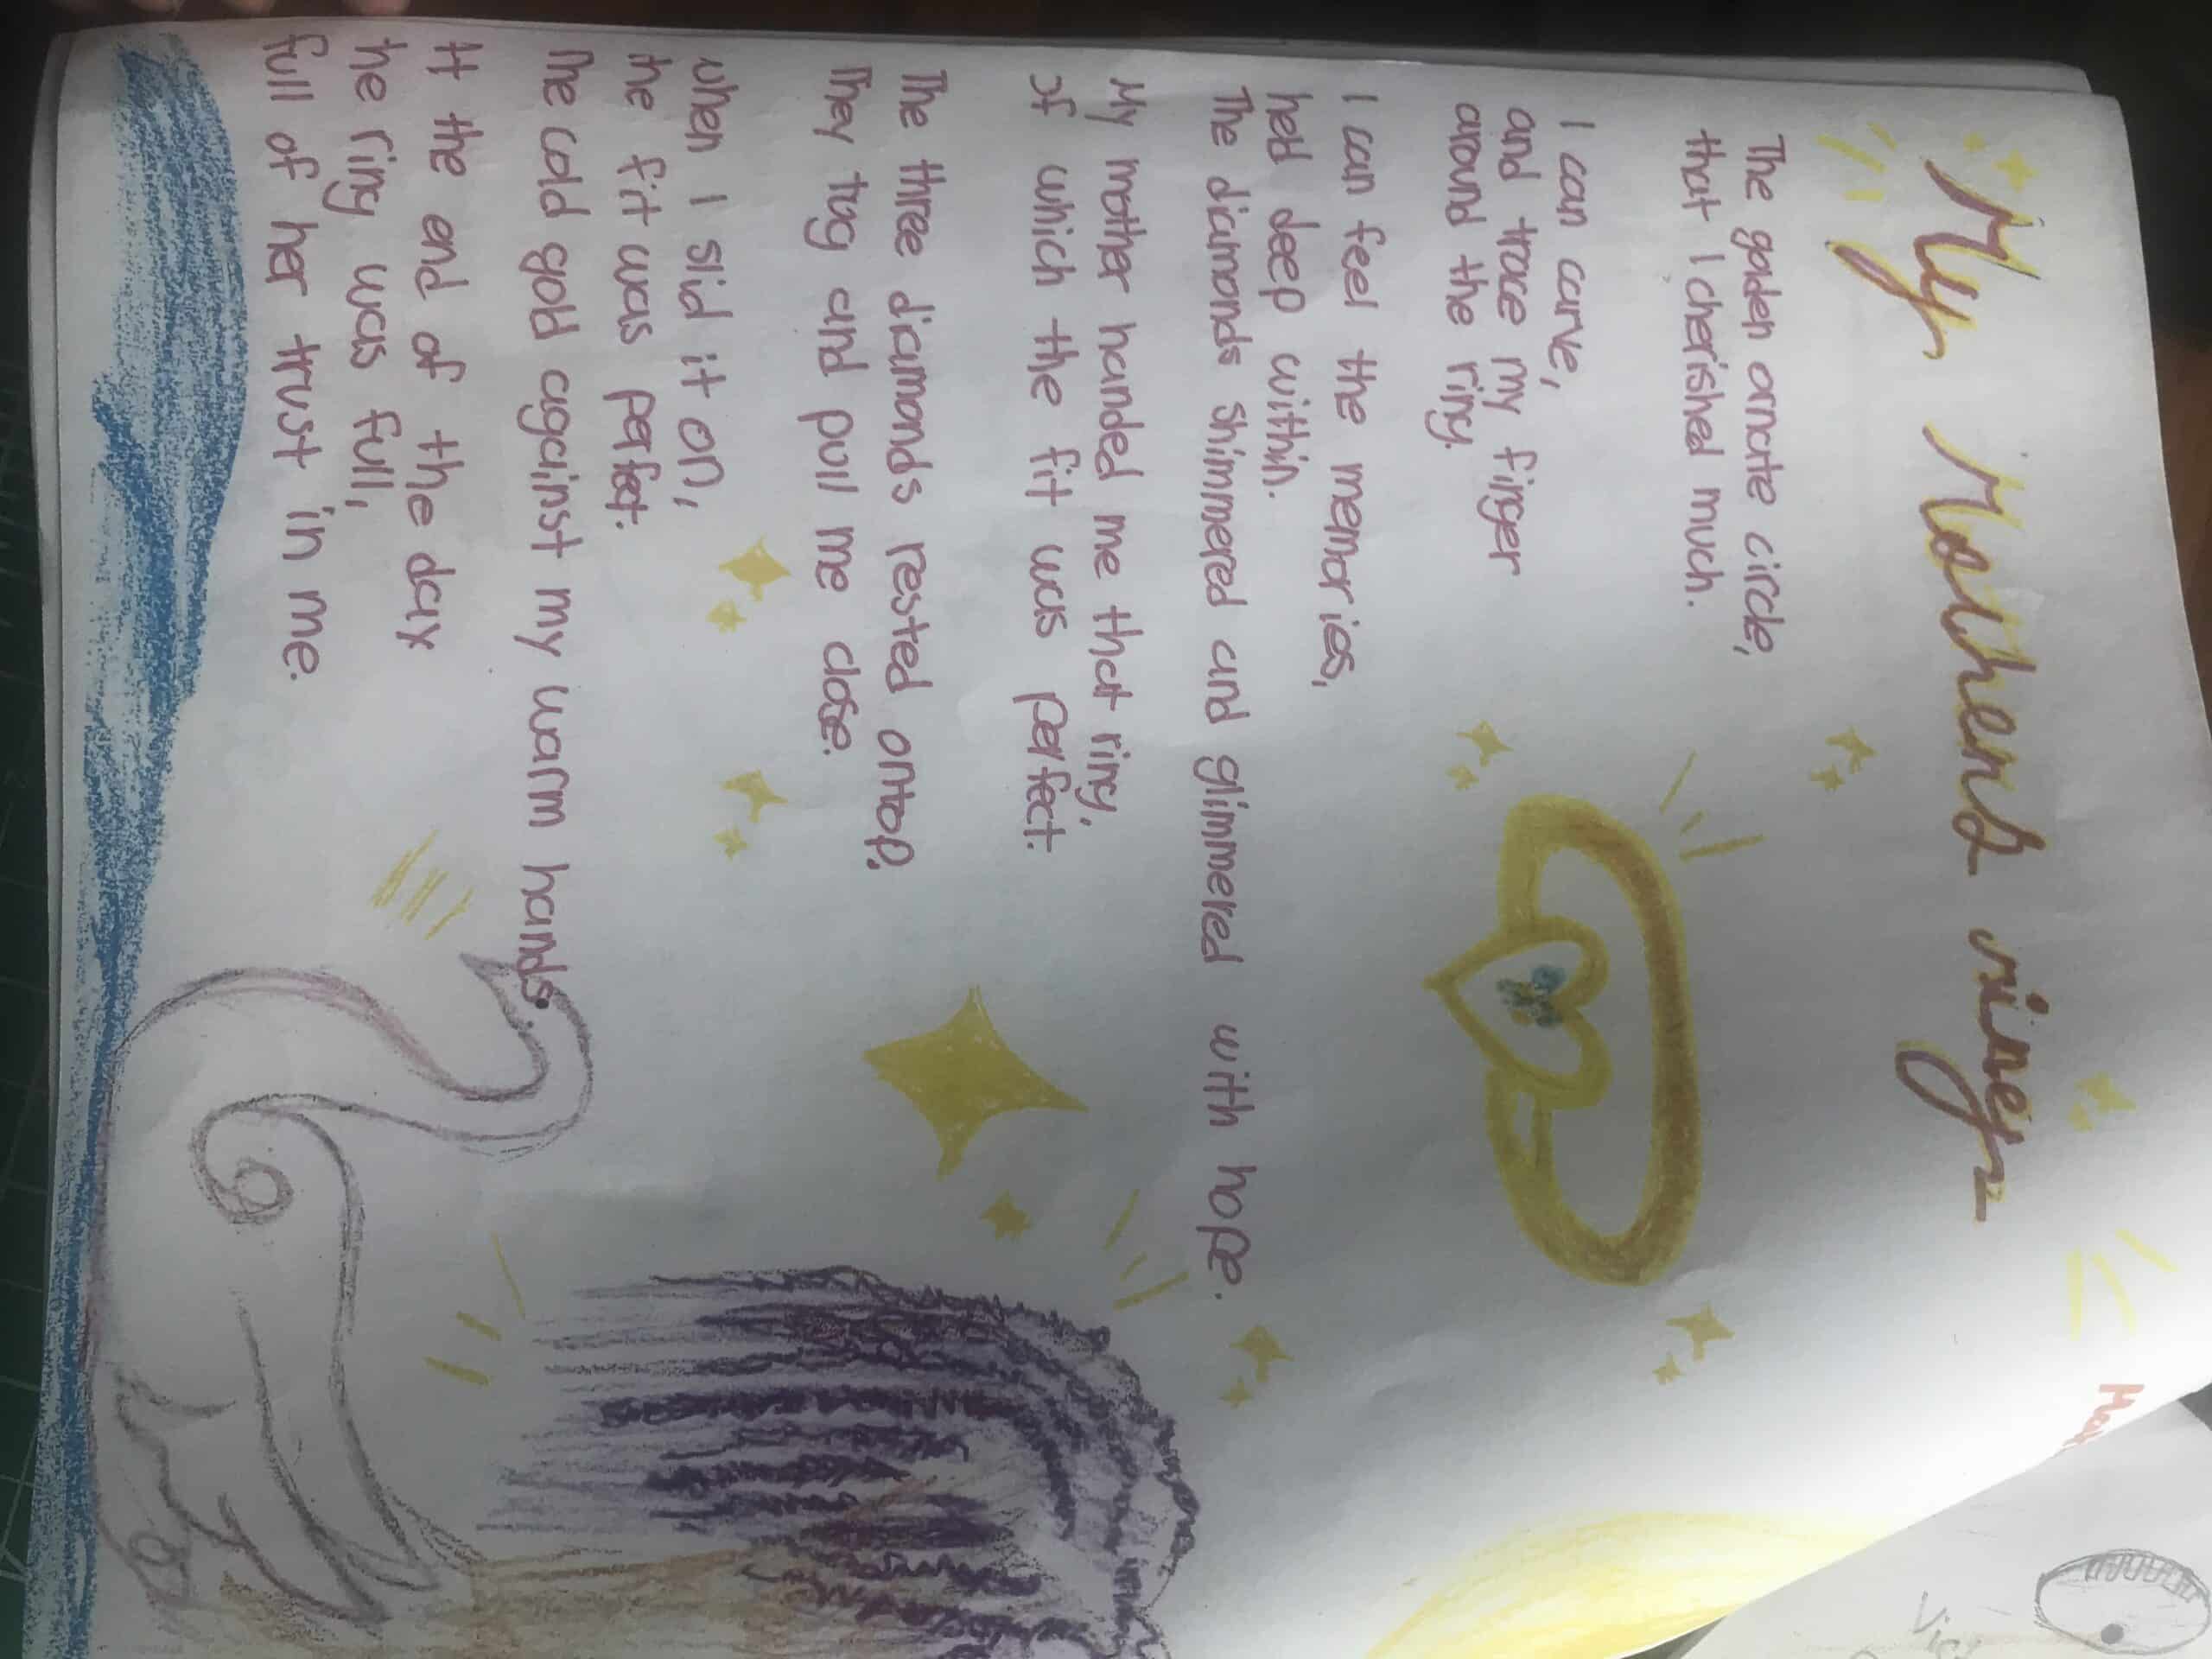 My Mothers ring
The golden ornate circle,
that I cherished much.
I can carve,
and trace my finger
around the ring.
I can feel the memories,
held deep within.
The diamonds shimmered and glimmered with hope.
My mother handed me that ring,
If which the fit was perfect.
The three diamonds rested ontop.
They tug and pull me close.
when I slid it on,
the fit was perfect.
The cold gold against my warm hands.
At the end of the day
the ring was full,
full of her trust in me.